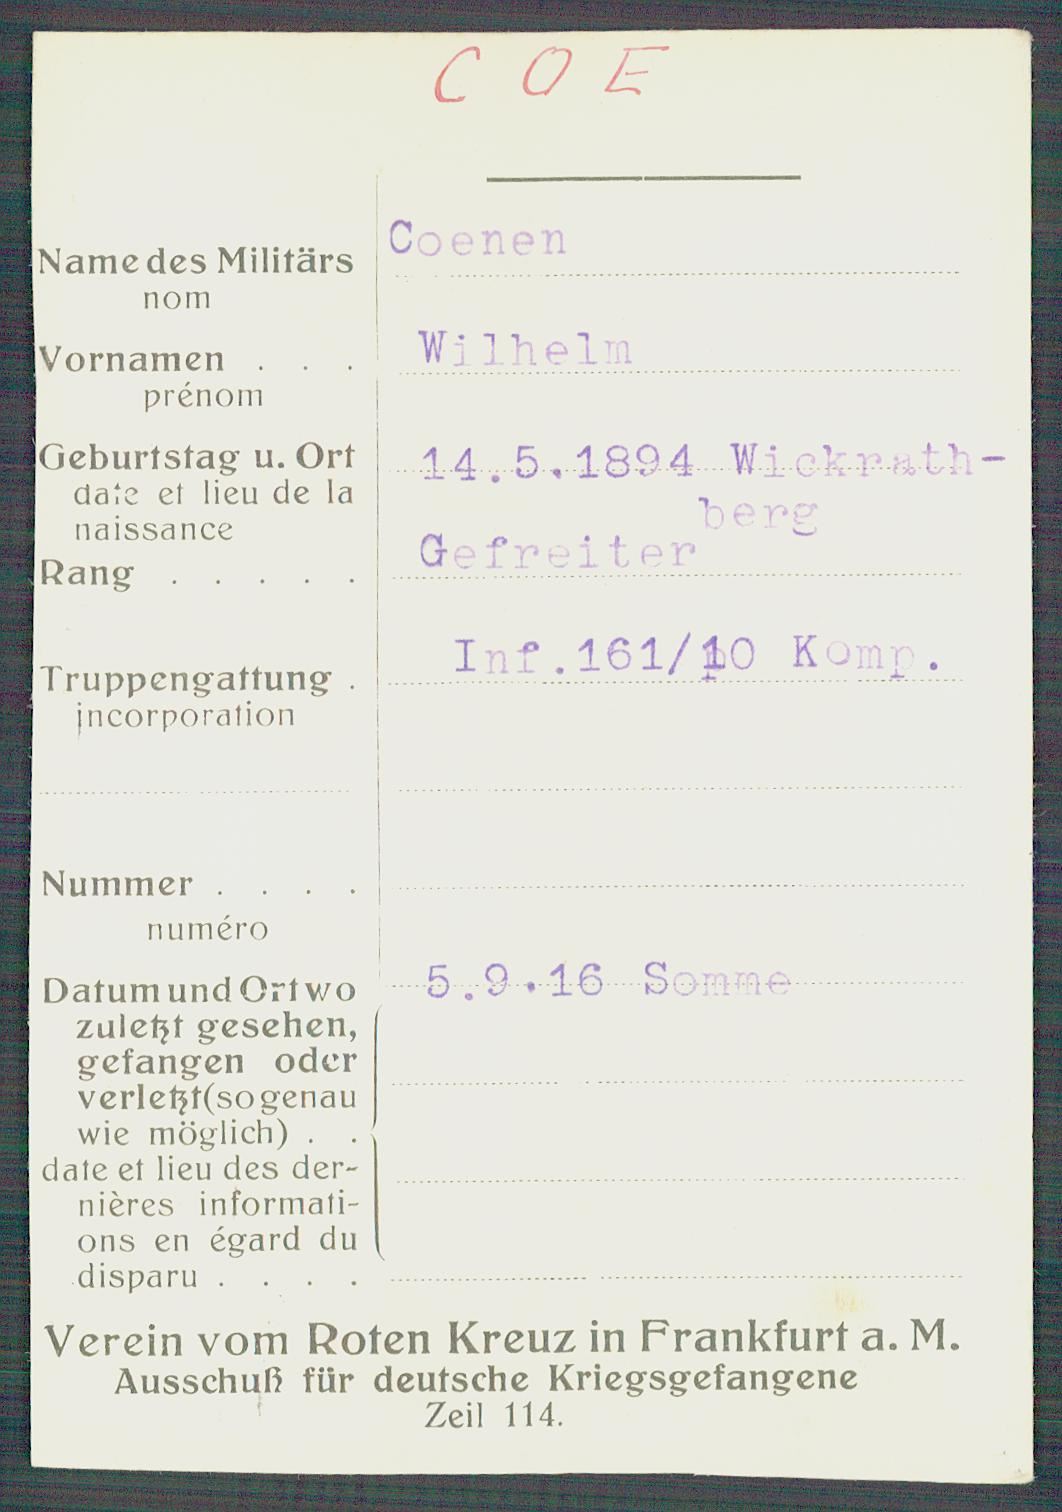 C O E
Name des Militärs Coenen
nom
Vornamen . . . Wilhelm
prénom
Geburtstag u. Ort 14.5.1894 Wickrath-
date et lieu de la berg
naissance
Rang . . . . . Gefreiter
Truppengattung . Inf.161/10 Komp.
incorporation
Nummer . . . .
numéro
Datum und Ort wo 5.9.16 Somme
zuletzt gesehen,
gefangen oder
verletzt (so genau
wie möglich) . .
date et lieu des der-
nières informati-
ons en égard du
disparu . . . .
Verein vom Roten Kreuz in Frankfurt a. M.
Ausschuß für deutsche Kriegsgefangene
Zeil 114.